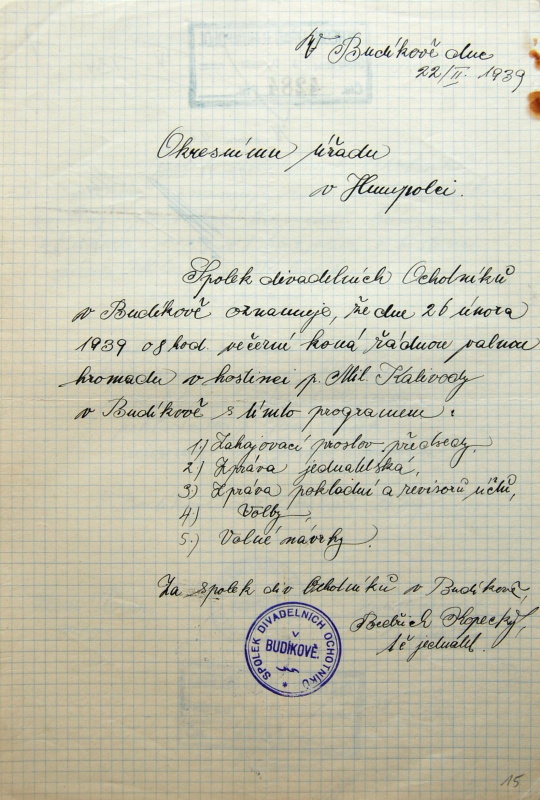 V Budíkově dne
22/II. 1939
Okresnímu úřadu
v Humpolci.
Spolek divadelních Ochotníků
v Budíkově oznamuje, že dne 26 února
1939 o 8 hod. večerní koná řádnou valnou
hromadu v hostinci p. Mil. Kalivody
v Budíkově s tímto programem:
1.) Zahajovací proslov předsedy,
2.) Zpráva jednatelska,
3.) Zpráva pokladní a revisorů účtů,
4.) Volby,
5.) Volné návrhy.
Za spolek div Ochotníků v Budíkově,
Bedřich Kopecký,
t č jednatel.
SPOLEK DIVADELNÍCH OCHOTNÍKŮ
V
BUDÍKOVĚ.
15